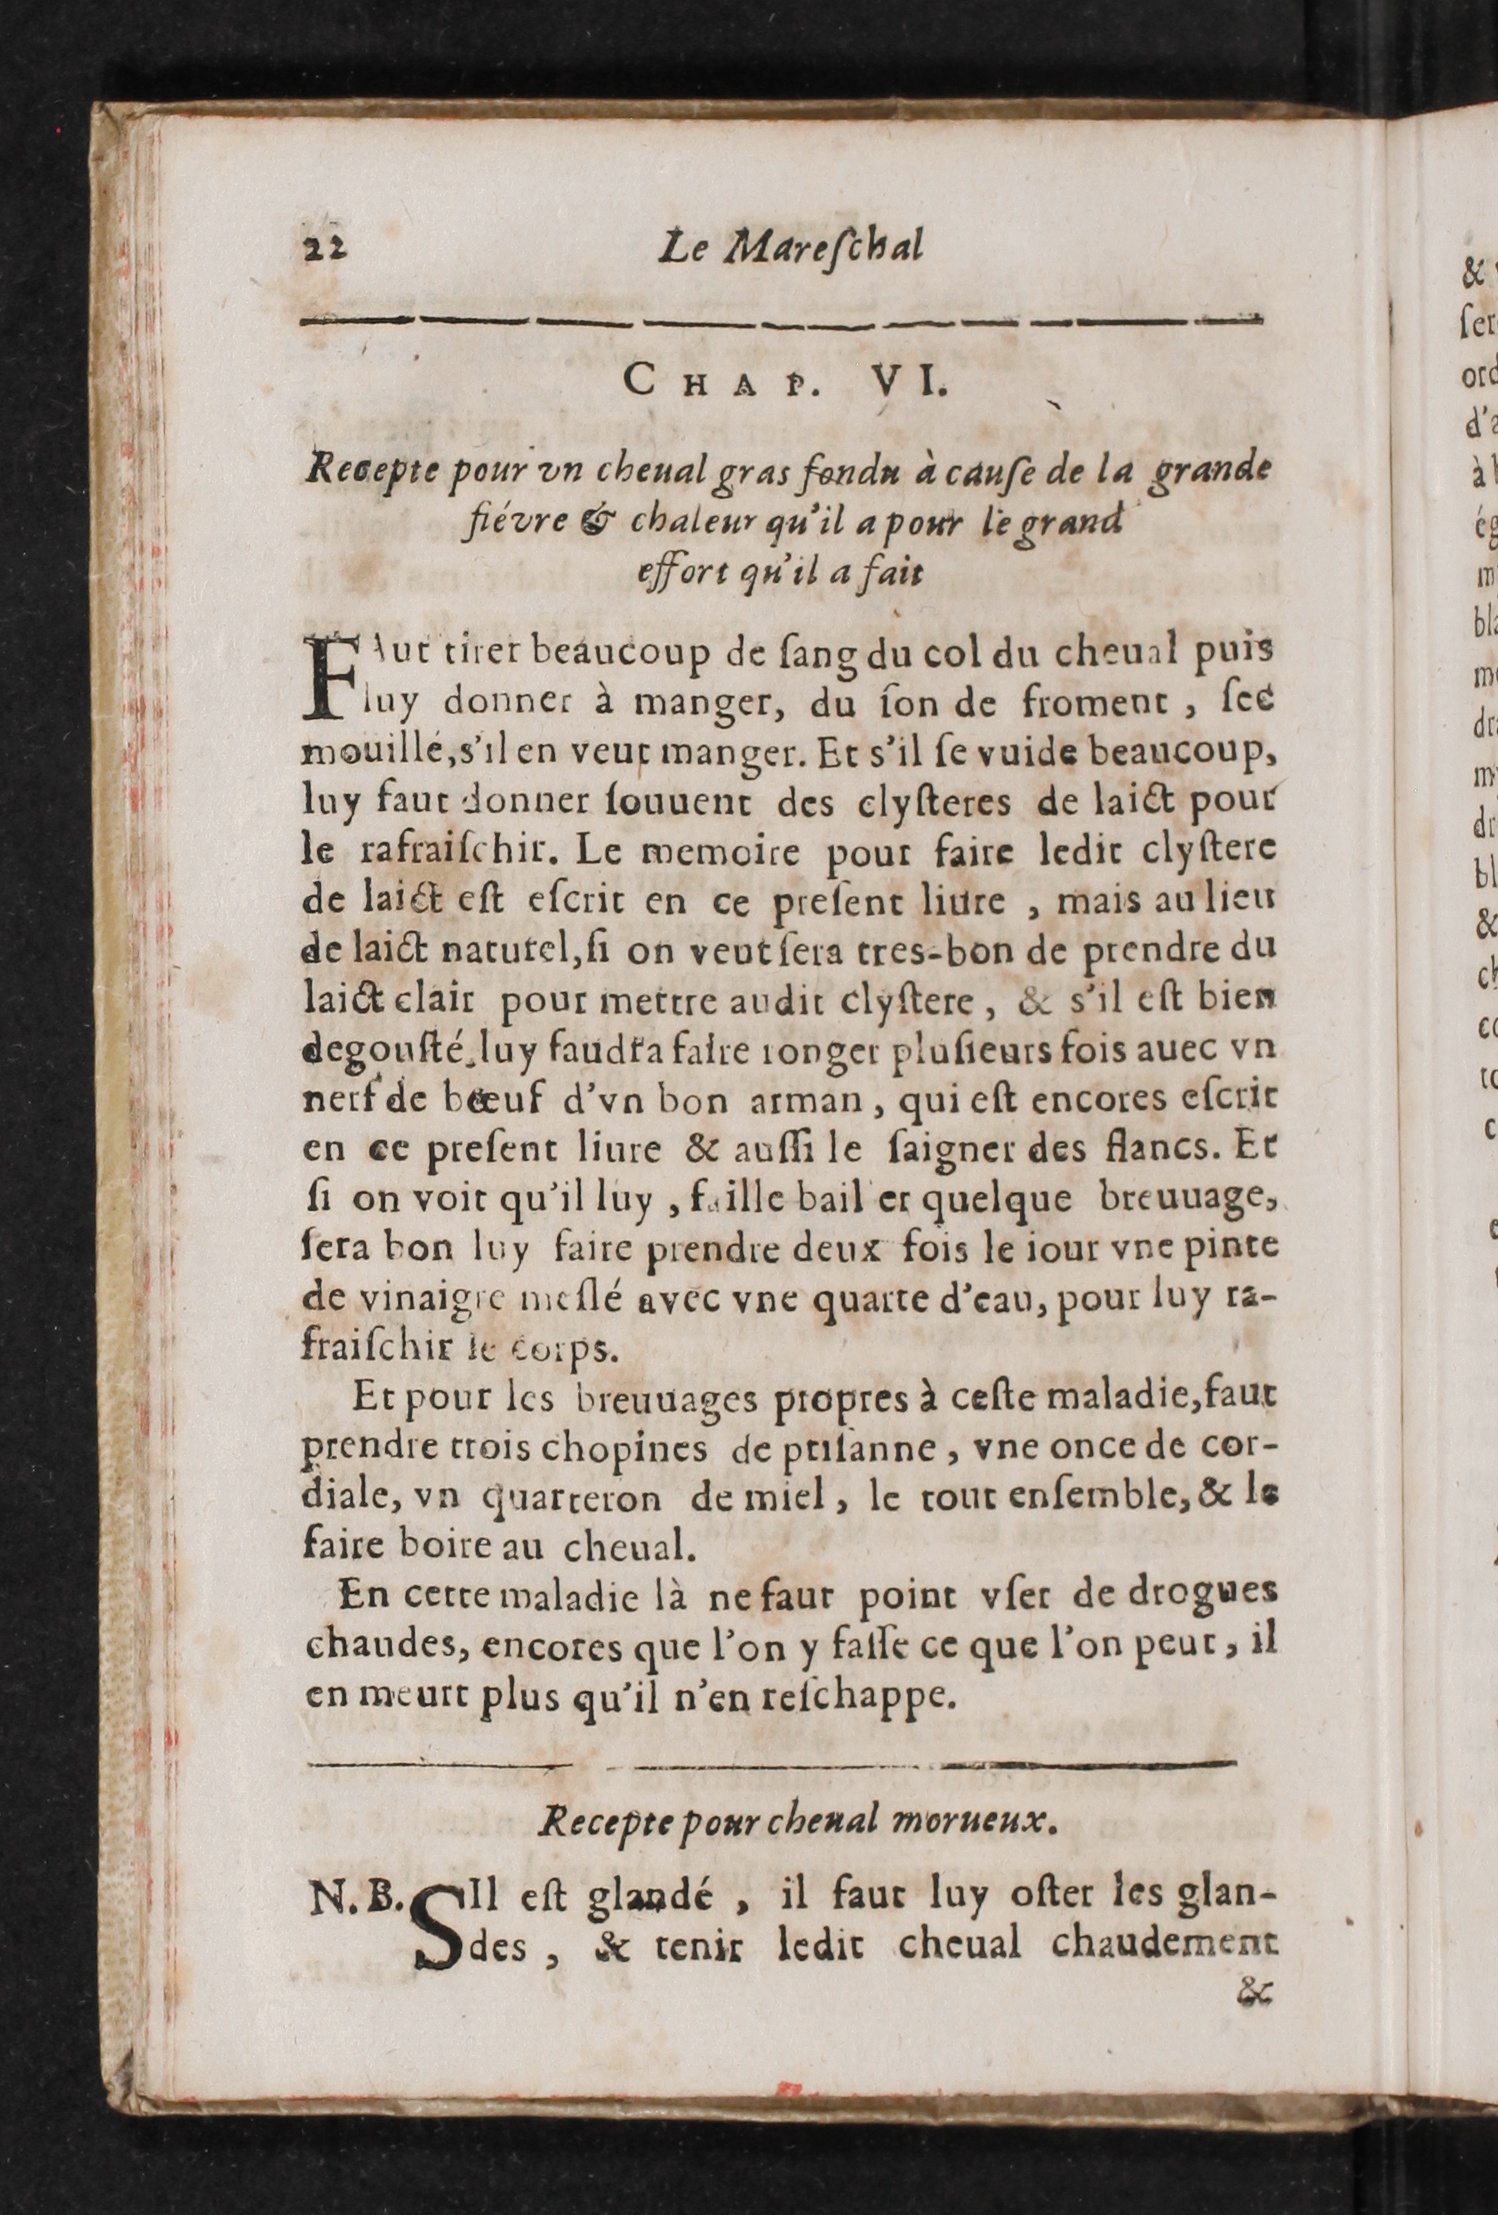 22 Le Mareſchal
CHAP. VI.
Recepte pour vn cheual gras fondu à cauſe de la grande
fiévre & chaleur qu'il a pour le grand
effort qu'il a fait
FAut tirer beaucoup de ſang du col du cheual puis
luy donner à manger, du ſon de froment, ſec
mouillé, s'il en veut manger. Et s'il ſe vuide beaucoup,
luy faut donner ſouuent des clyſteres de laict pour
le rafraiſchir. Le memoire pour faire ledit clyſtere
de laict eſt eſcrit en ce preſent liure, mais au lieu
de laict naturel, ſi on veut ſera tres-bon de prendre du
laict clair pour mettre audit clyſtere, & s'il eſt bien
degouſté, luy faudra faire ronger pluſieurs fois auec vn
nerf de bœuf d'vn bon arman, qui eſt encores eſcrit
en ce preſent liure & auſſi le ſaigner des flancs. Et
ſi on voit qu'il luy, faille bailler quelque breuuage,
ſera bon luy faire prendre deux fois le iour vne pinte
de vinaigre meſlé avec vne quarte d'eau, pour luy ra-
fraiſchir le corps.
Et pour les breuuages propres à ceſte maladie, faut
prendre trois chopines de ptiſanne, vne once de cor-
diale, vn quarteron de miel, le tout enſemble, & le
faire boire au cheual.
En cette maladie là ne faut point vſer de drogues
chaudes, encores que l'on y faſſe ce que l'on peut, il
en meurt plus qu'il n'en reſchappe.
Recepte pour cheual morueux.
N.B. SIl eſt glandé, il faut luy oſter les glan-
des, & tenir ledit cheual chaudement
&